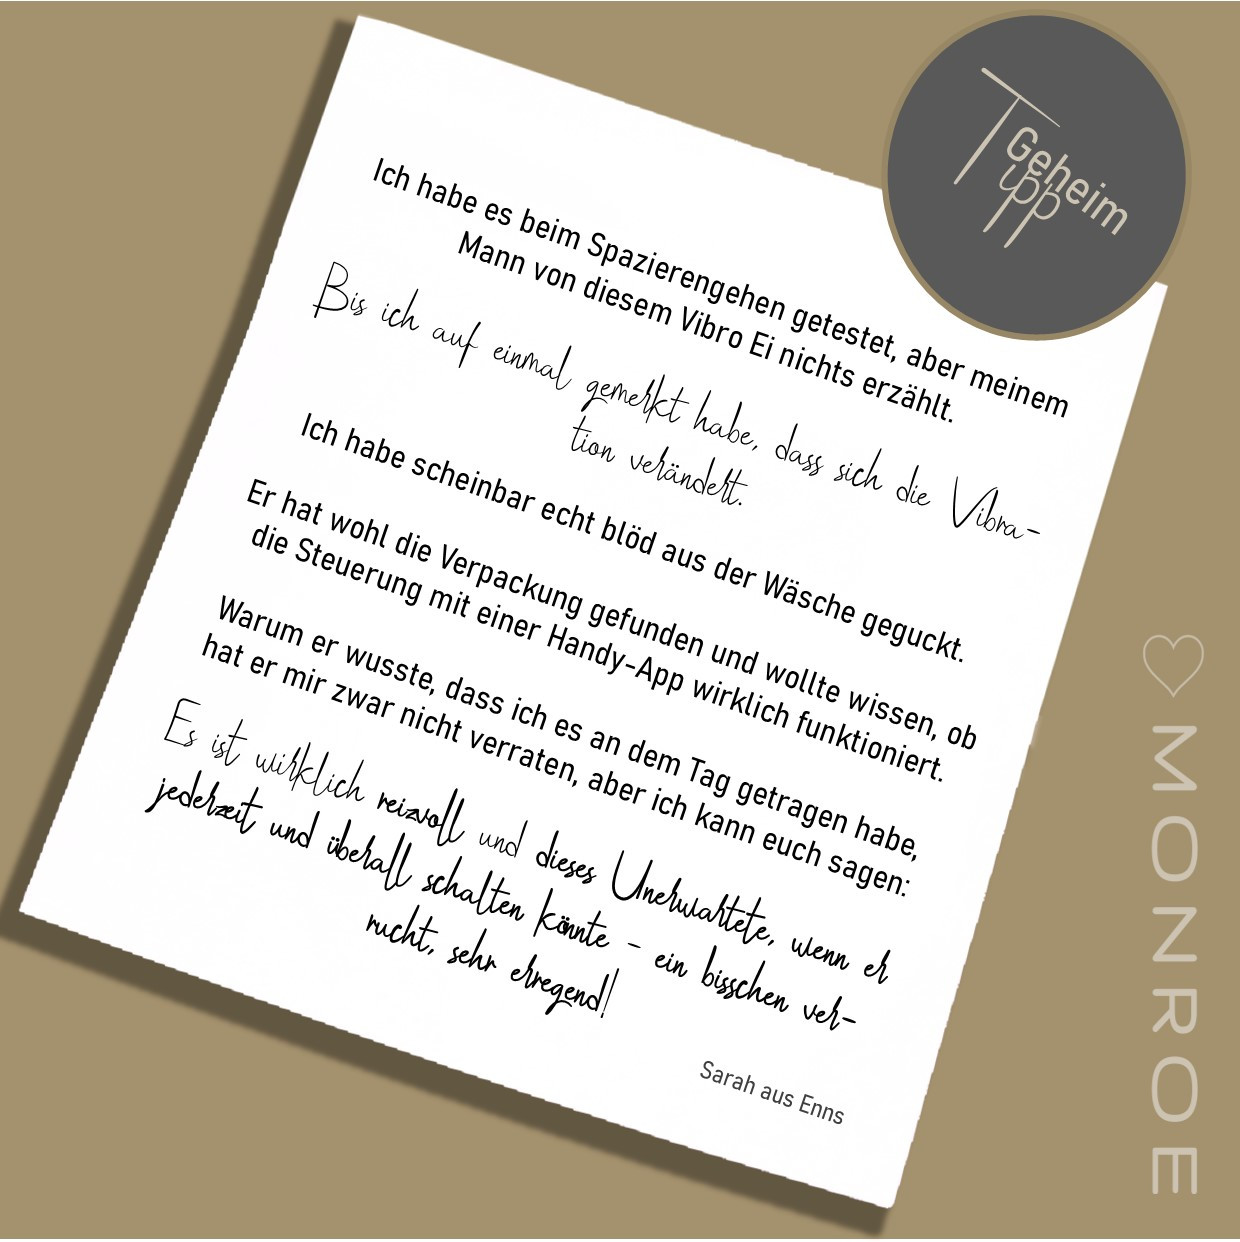 Geheim
Tipp
Ich habe es beim Spazierengehen getestet, aber meinem
Mann von diesem Vibro Ei nichts erzählt.
Bis ich auf einmal gemerkt habe, dass sich die Vibra-
tion verändert.
Ich habe scheinbar echt blöd aus der Wäsche geguckt.
Er hat wohl die Verpackung gefunden und wollte wissen, ob
die Steuerung mit einer Handy-App wirklich funktioniert.
Warum er wusste, dass ich es an dem Tag getragen habe,
hat er mir zwar nicht verraten, aber ich kann euch sagen:
Es ist wirklich reizvoll und dieses Unerwartete, wenn er
jederzeit und überall schalten könnte - ein bisschen ver-
rucht, sehr erregend!
Sarah aus Enns
MONROE